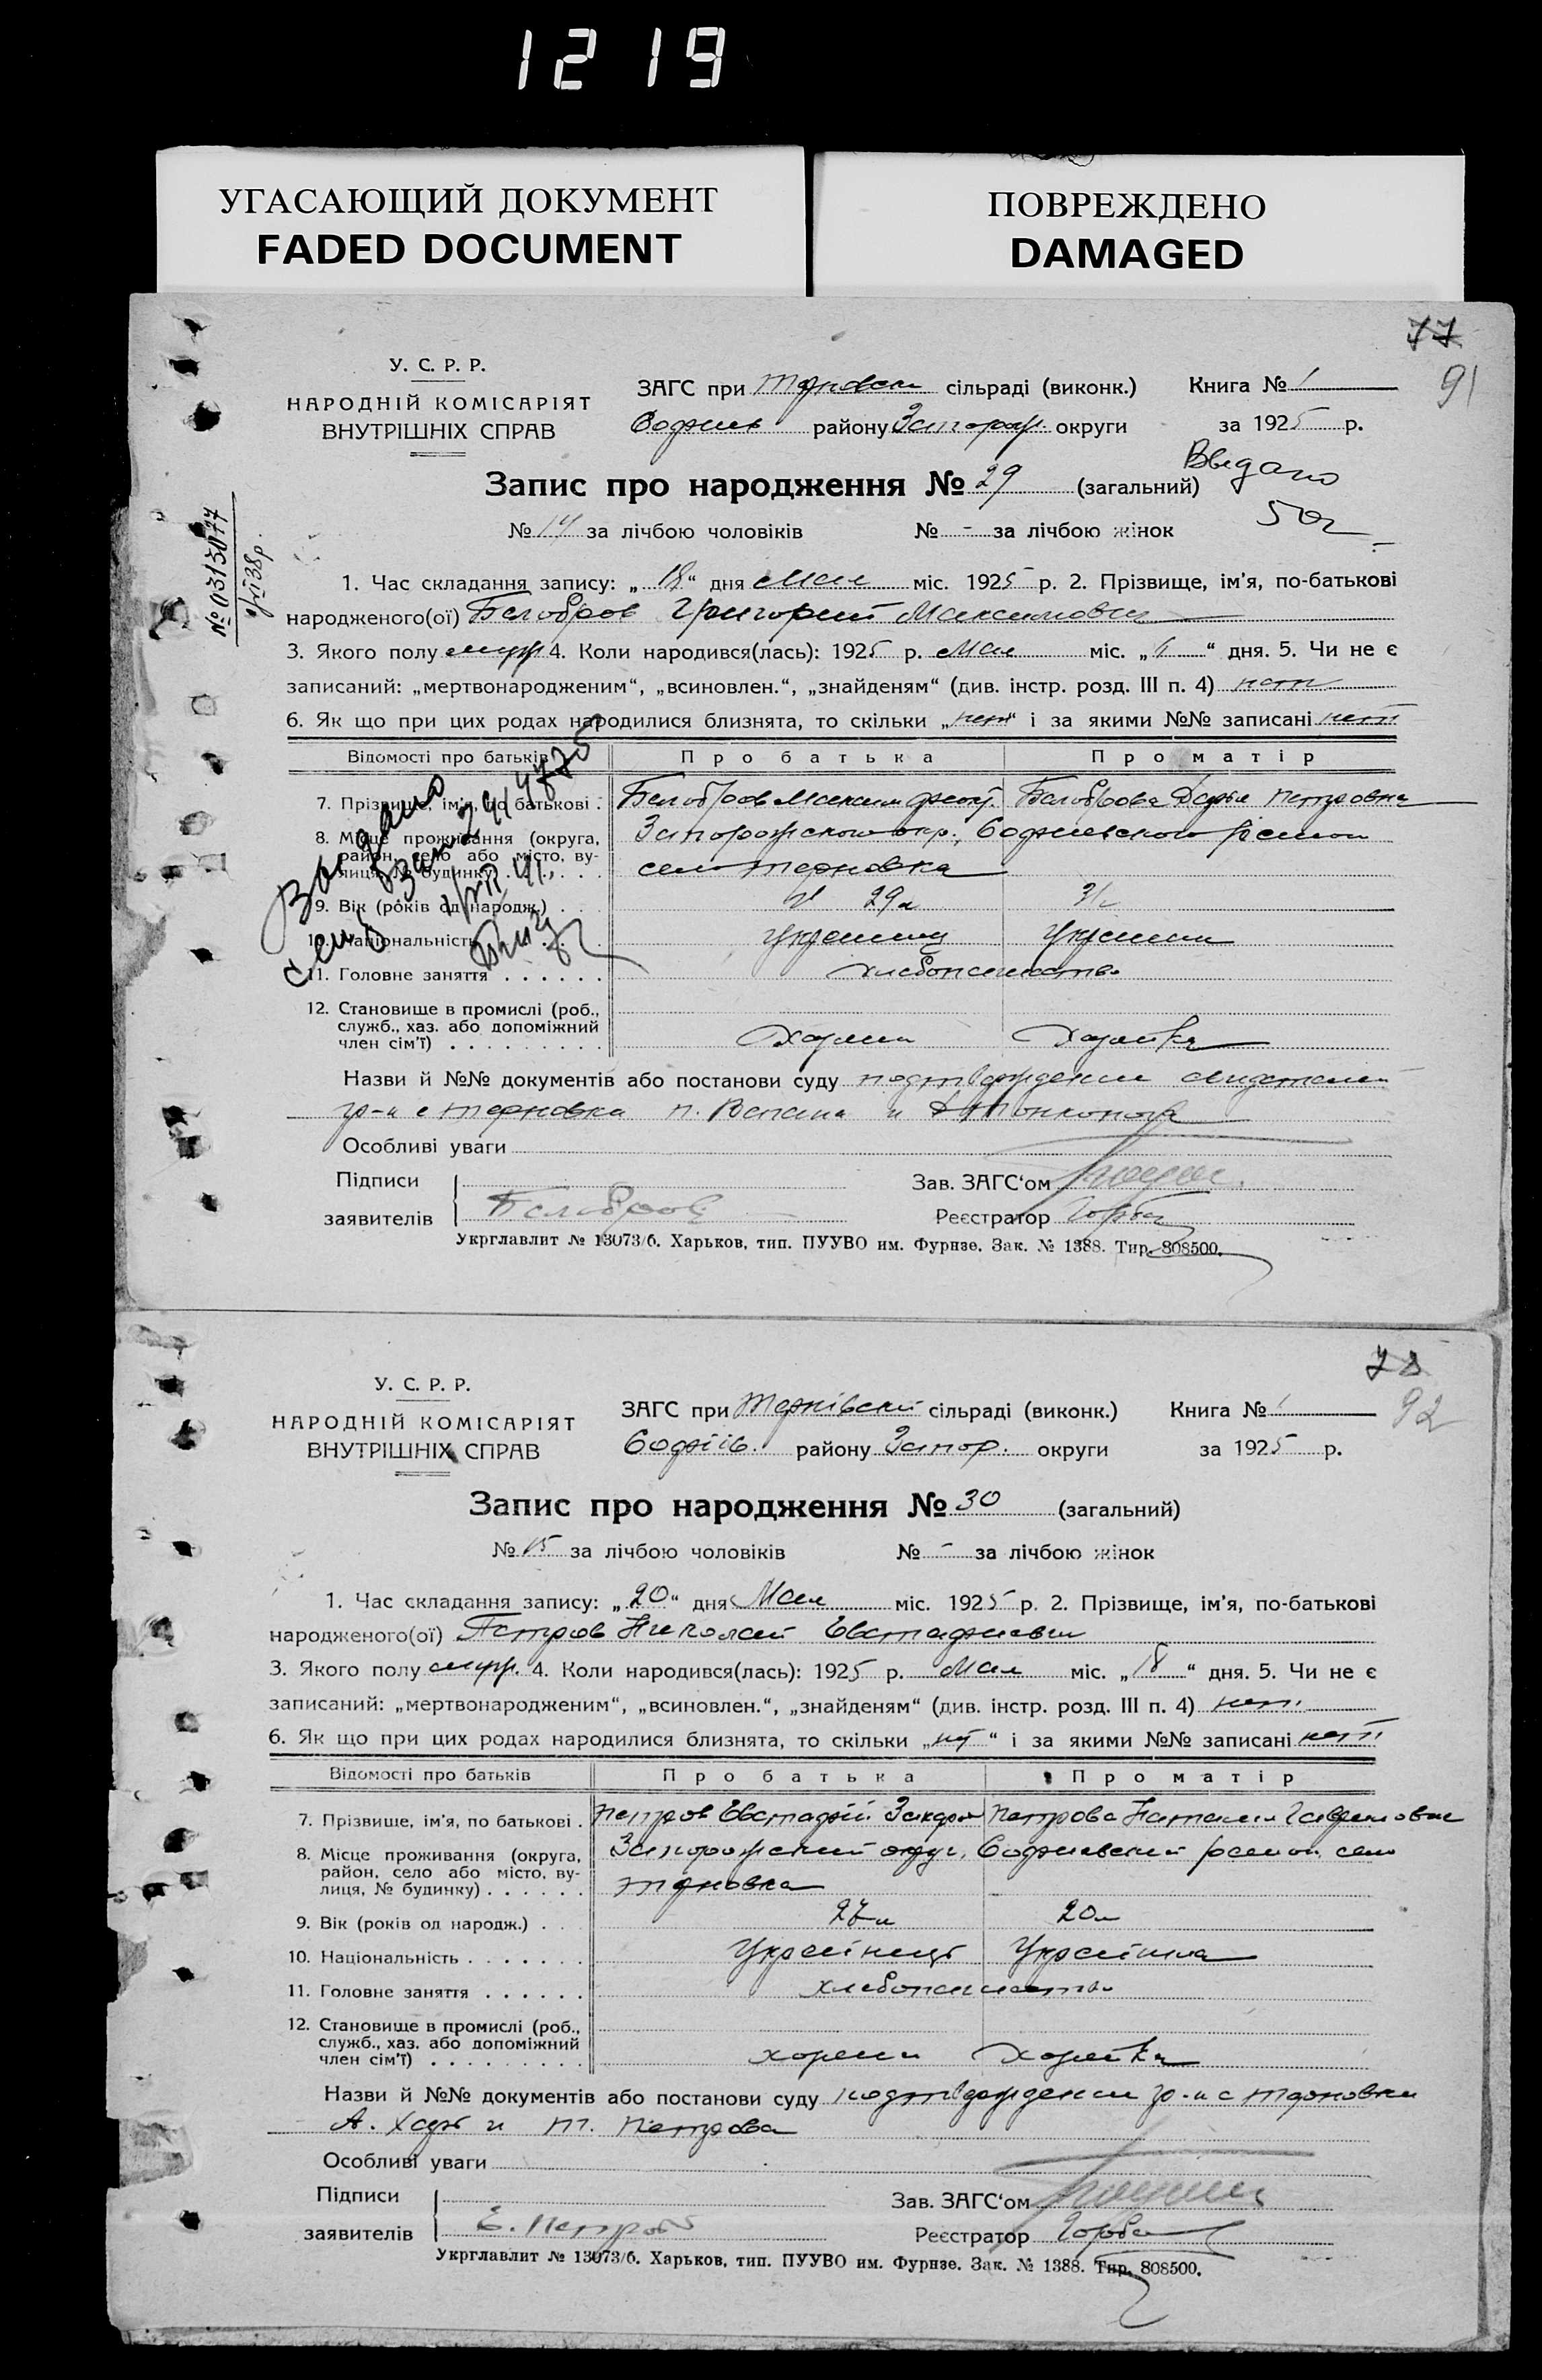 1219
УГАСАЮЩИЙ ДОКУМЕНТ
FADED DOCUMENT
ПОВРЕЖДЕНО
DAMAGED
77
91
У. С. Р. Р.
НАРОДНІЙ КОМІСАРІЯТ
ВНУТРІШНІХ СПРАВ
ЗАГС при Терновск сільраді (виконк.) Книга № 1
району Запорож. округи за 1925 р.
Запис про народження № 29 (загальний)
№ 14 за лічбою чоловіків № - за лічбою жінок
№ 0313077
1. Час складання запису: „18“ дня Мая міс. 1925 р. 2. Прізвище, ім’я, по-батькові
народженого(ої) Белобров Григорий Максимович
3. Якого полу муж 4. Коли народився(лась): 1925 р. Мая міс. „6“ дня. 5. Чи не є
записаний: „мертвонародженим“, „всиновлен.“, „знайденям“ (див. інстр. розд. III п. 4) нет
6. Як що при цих родах народилися близнята, то скільки „нет“ і за якими №№ записані нет
Відомості про батьків Про батька Про матір
7. Прізвище, ім’я, по батькові . Белобров Максим Белоброва Дарья Петровна
8. Місце проживання (округа, Запорожского окр., Софиевского район
район, село або місто, ву-
лиця, № будинку) село Терновка
9. Вік (років од народж.) 29 31
10. Національність Украинец Украинка
11. Головне заняття хлебопашество
12. Становище в промислі (роб.,
служб., хаз. або допоміжний
член сім’ї) Хозяин Хозяйка
Назви й №№ документів або постанови суду подтверждении
гр-н с Терновка п. и
Особливі уваги
Підписи Зав. ЗАГС‘ом
заявителів Белобров Реєстратор Горбач
Укрглавлит № 13073/б. Харьков, тип. ПУУВО им. Фурнзе. Зак. № 1388. Тир. 808500.
78
92
У. С. Р. Р.
НАРОДНІЙ КОМІСАРІЯТ
ВНУТРІШНІХ СПРАВ
ЗАГС при Тернівскій сільраді (виконк.) Книга № 1
Софіїв. району Запор. округи за 1925 р.
Запис про народження № 30 (загальний)
№ 15 за лічбою чоловіків № - за лічбою жінок
1. Час складання запису: „20“ дня Мая міс. 1925 р. 2. Прізвище, ім’я, по-батькові
народженого(ої) Петров Николай Евстафиевич
3. Якого полу муж. 4. Коли народився(лась): 1925 р. Мая міс. „18“ дня. 5. Чи не є
записаний: „мертвонародженим“, „всиновлен.“, „знайденям“ (див. інстр. розд. III п. 4) нет.
6. Як що при цих родах народилися близнята, то скільки „нет“ і за якими №№ записані нет
Відомості про батьків Про батька Про матір
7. Прізвише, ім’я, по батькові . Петров Евстафій Захаров Петрова Наталия Гавриловна
8. Місце проживання (округа, Запорожский округ, Софиевский район село
район, село або місто, ву-
лиця, № будинку) Терновка
9. Вік (років од народж.) 27 20
10. Національність Украінець Украінка
11. Головне заняття хлебопашество
12. Становище в промислі (роб.,
служб., хаз. або допоміжний
член сім’ї) хозяин Хозяйка
Назви й №№ документів або постанови суду подтверждении гр-н с Терновки
А. и Т. Петрова
Особливі уваги
Підписи Зав. ЗАГС‘ом
заявителів Е. Петров Реєстратор Горбач
Укрглавлит № 13073/б. Харьков, тип. ПУУВО им. Фурнзе. Зак. № 1388. Тир. 808500.